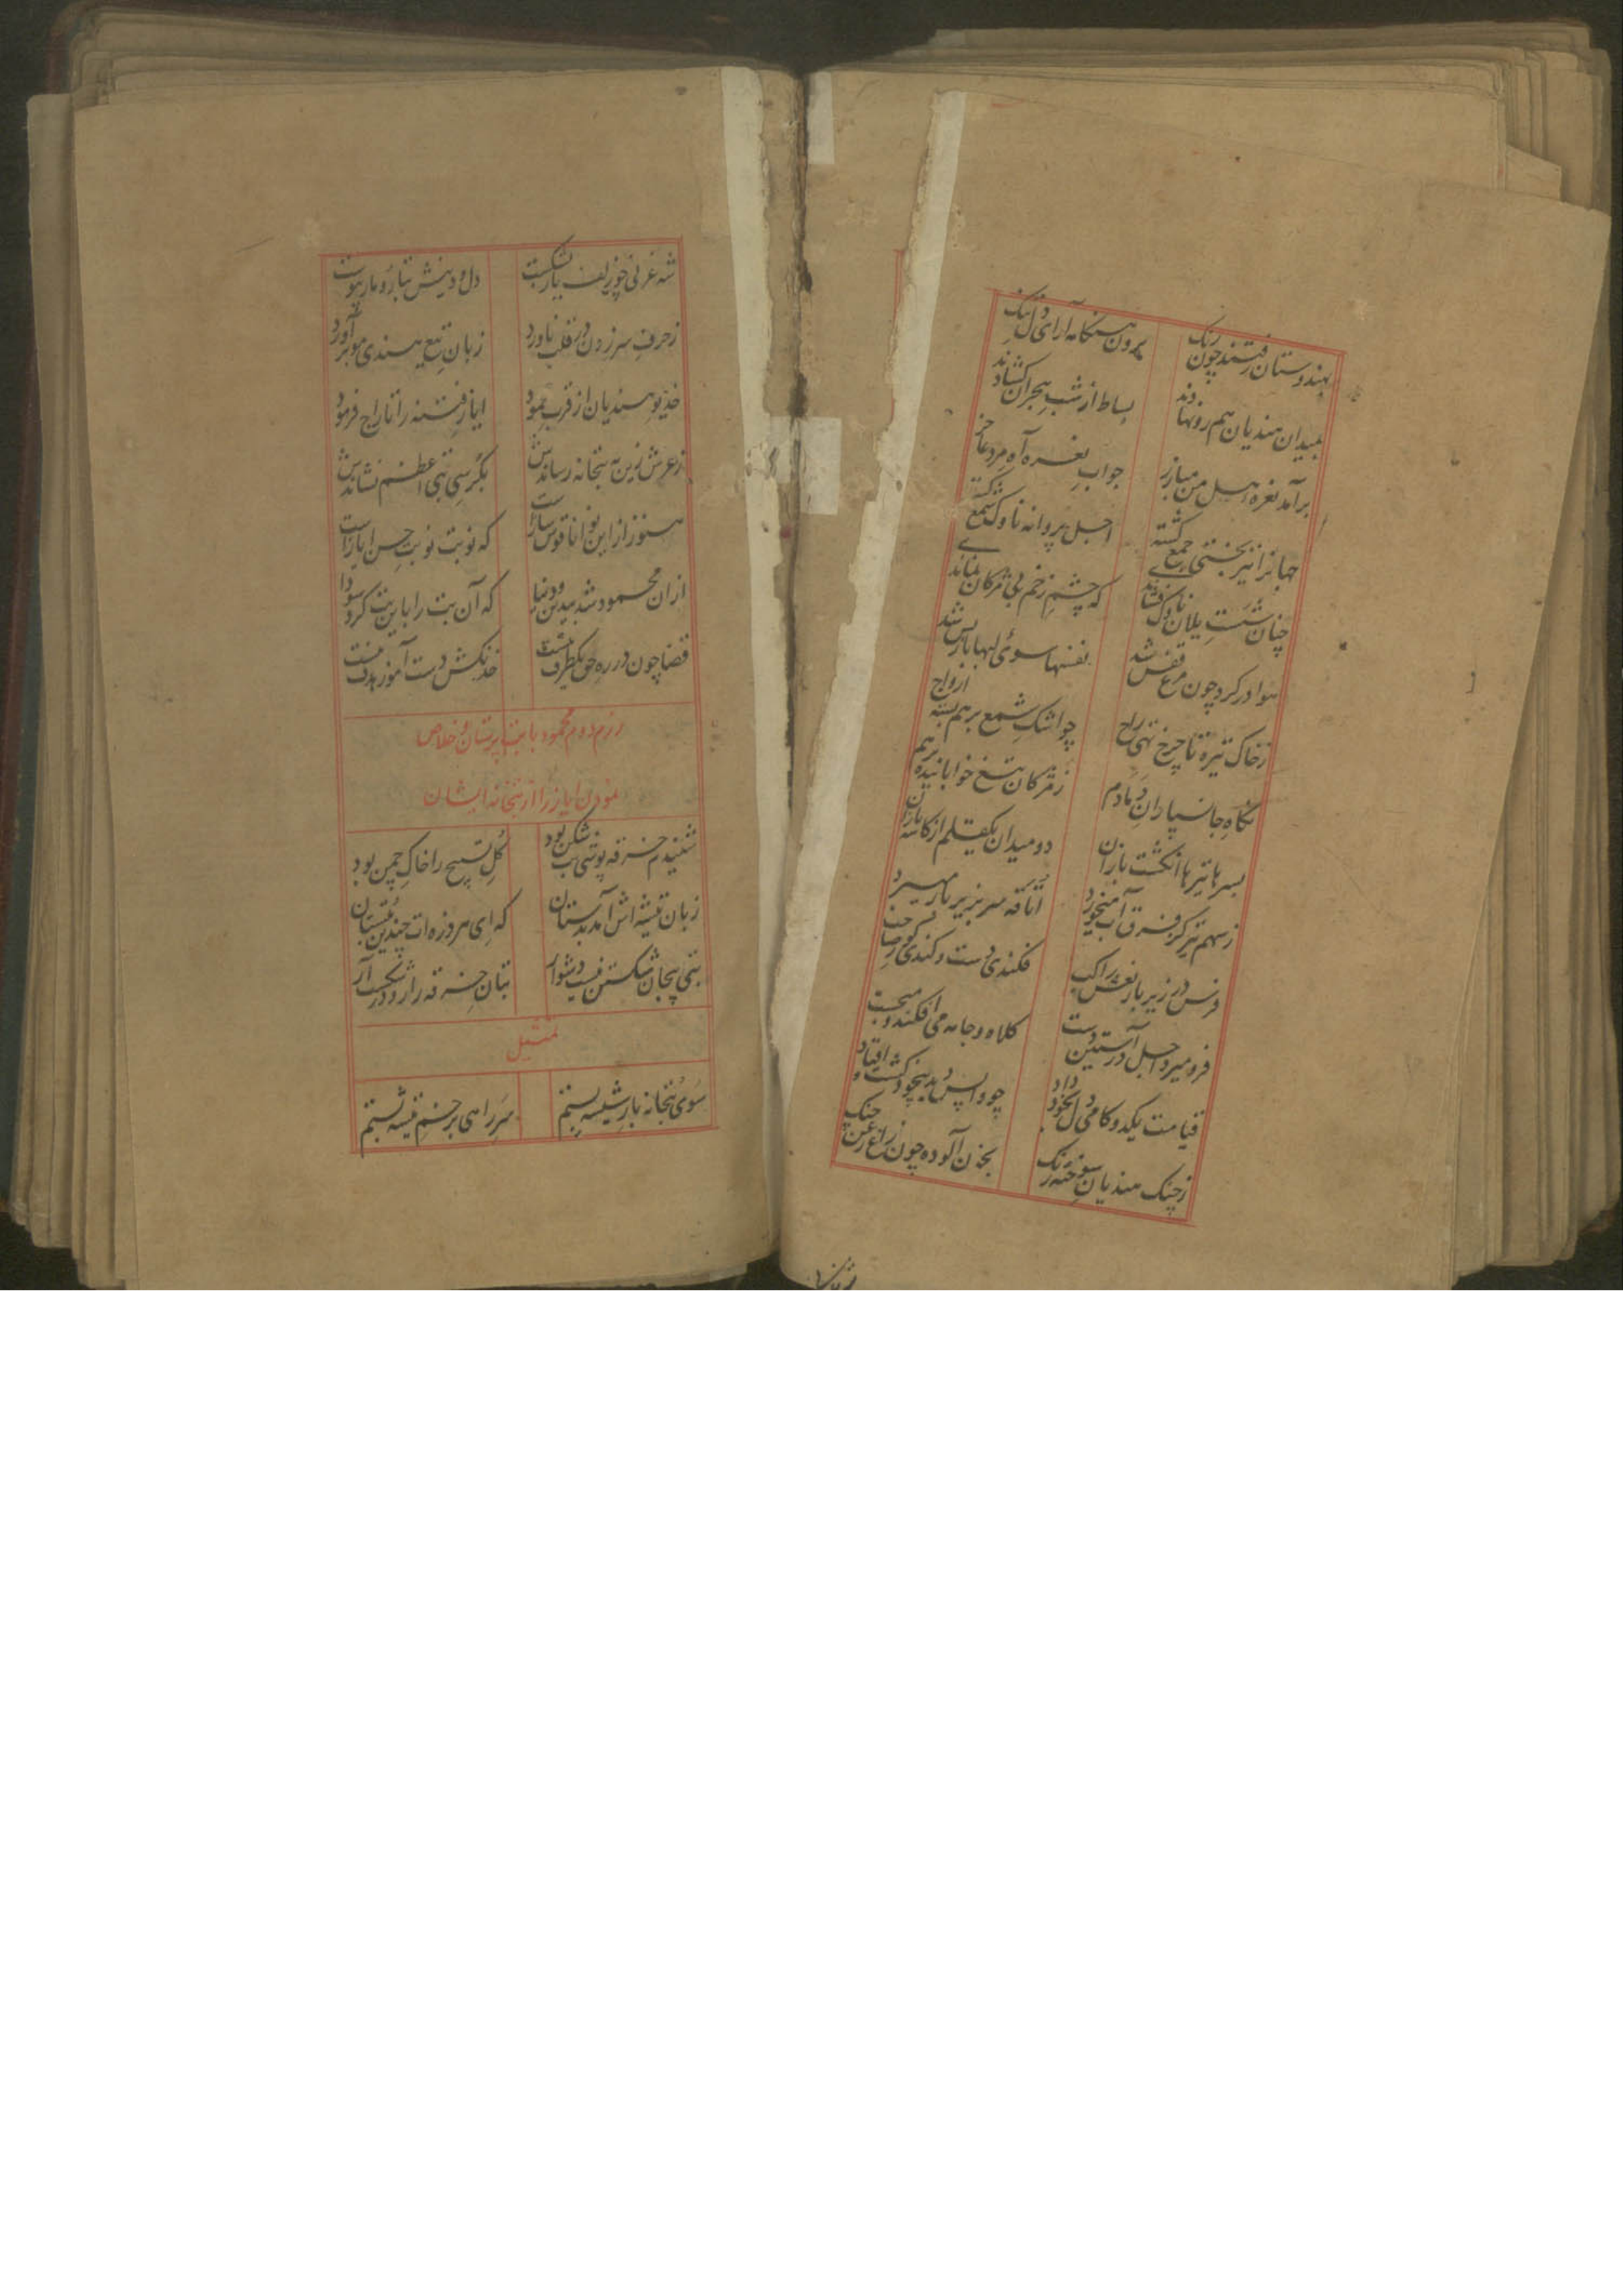 بهندوستان رفتند چون رنک بیرون هنکامه آرای دل تنک
بمیدان هندیان هم رو نهادند بساط از شب هجران کشادند
برآمد نعره هل من مبارز جواب نعره آه مرد عاجز
جهانرا تیربختی جمع کشته اجل پروانه ناوک شمع کشته
چنان شست یلان ناوک فشاندی که چشم زخم بی مژکان نماندی
هوا در کرد چون مرغ قفس شد نفسها سوی لبها باز پس شد
ز خاک تیره تا چرخ تهی راج چو اشک شمع برهم بسته ارواج
نکاه جانسپاران دمادم ز مژکان تیغ خوابانیده برهم
بسر با تیرها انکشت بازان دو میدان یکقلم از کاسه بازان
ز سهم تیر کز فرق آب میخورد اتاقه سر بزیر بار میبرد
فرس در زیر بار نعش راکب فکندی دست و کندی کور صاحب
فرو میرد اجل در آستین دست کلاه و جامه می افکند و میجست
قیامت یکدو کامی دل بخود داد چو واپس دید بیخود کشت و افتاد
ز چنک هندیان سوخته رنک بخون آلوده چون زاغ زغن چنک
شه غزنی چو زلف یار بشکست دل و دینش بتار و مار پیوست
ز حرف سرزدن در قلب ناورد زبان تیغ هندی مو برآورد
خدیو هندیان از قرب بهبود ایاز فتنه را تاراج فرمود
ز عرش زین به بتخانه رساندش بکرسی بتی اعظم نشاندش
هنوز از این نوا ناقوس سازاست که نوبت نوبت حسن ایازاست
ازان محمود شد بیدین و دنیا که آن بت را باین بت کرد سودا
قضا چون در ره حق یکطرف نیست خدنکش دست آموز هدف نیست
رزم دوم محمود با بت پرستان و خلاص
نمودن ایاز را از بتخانه ایشان
شنیدم خرقه پوشی بت شکن بود کل تسبیح را خاک چمن بود
زبان تیشه اش آمد بدستان که ای هر وزه ات چندین بتستان
بتی بیجان شکستن نیست دشوار بتان خرقه را رو در شکست آر
تمثیل
سوی بتخانه بار شیشه بستم سر راهی بزخم تیشه بستم